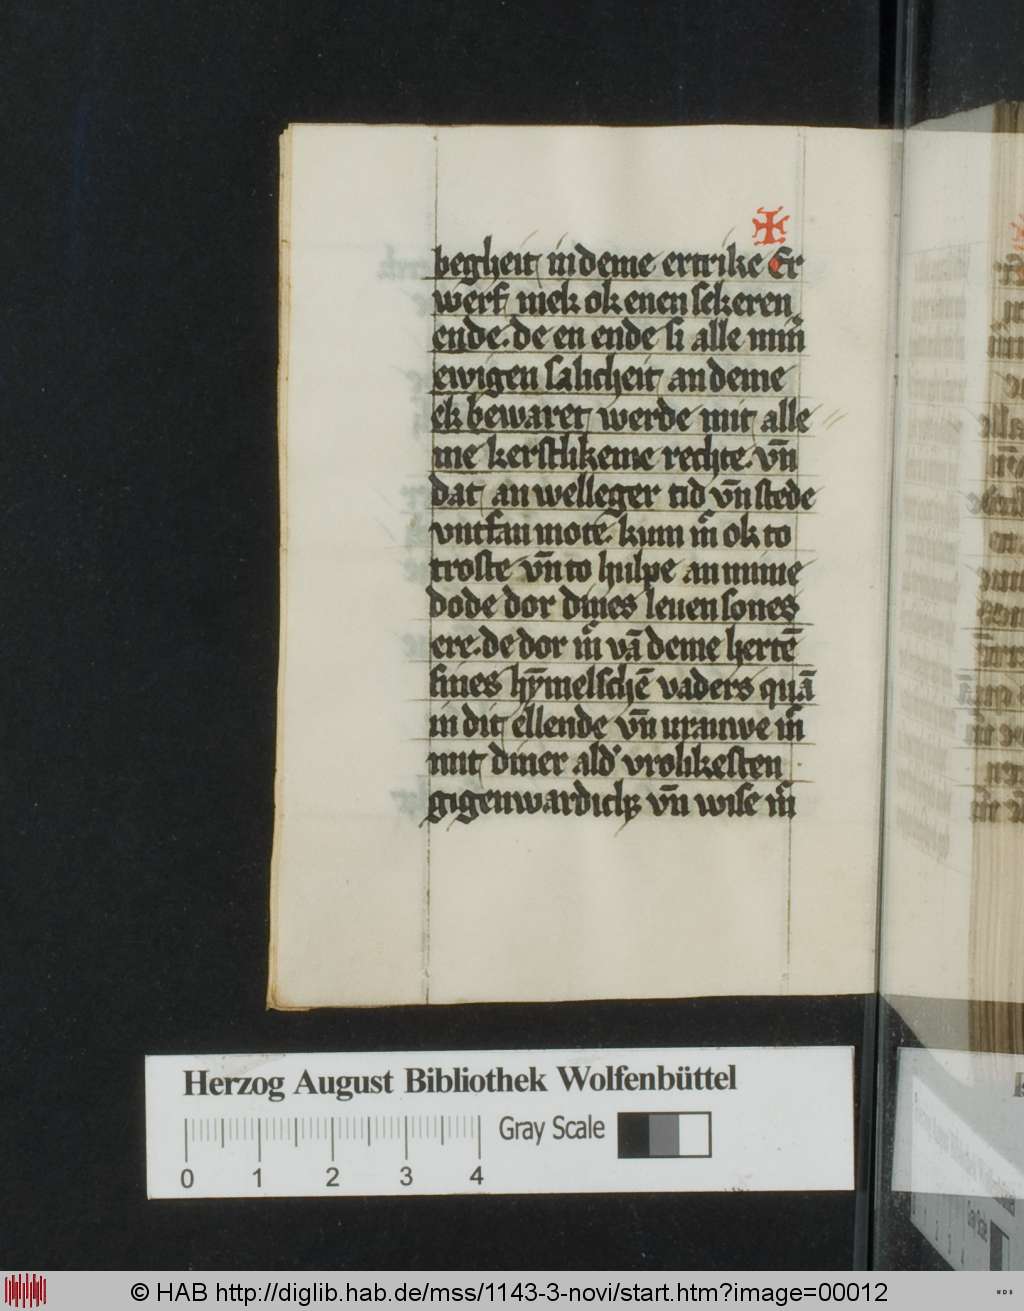 begheit in deme ertrike Er
werf mek ok enen sekeren
ende. de en ende si alle min̄
ewigen salicheit an deme
ek bewaret werde mit alle
me kerstlikeme rechte. vn̄
dat an welleger tid vn̄ stede
vntfan mote. kum m̄ ok to
troste vn̄ to hulpe an mime
dode dor dines leuen sones
ere. de dor m̄ vā deme hertē
sines hȳmelschē vaders quā
in dit ellende vn̄ urauwe m̄
mit diner ald' vrolikesten
gigenwardich vn̄ wise m̄
Herzog August Bibliothek Wolfenbüttel
Gray Scale
0 1 2 3 4
© HAB http://diglib.hab.de/mss/1143-3-novi/start.htm?image=00012